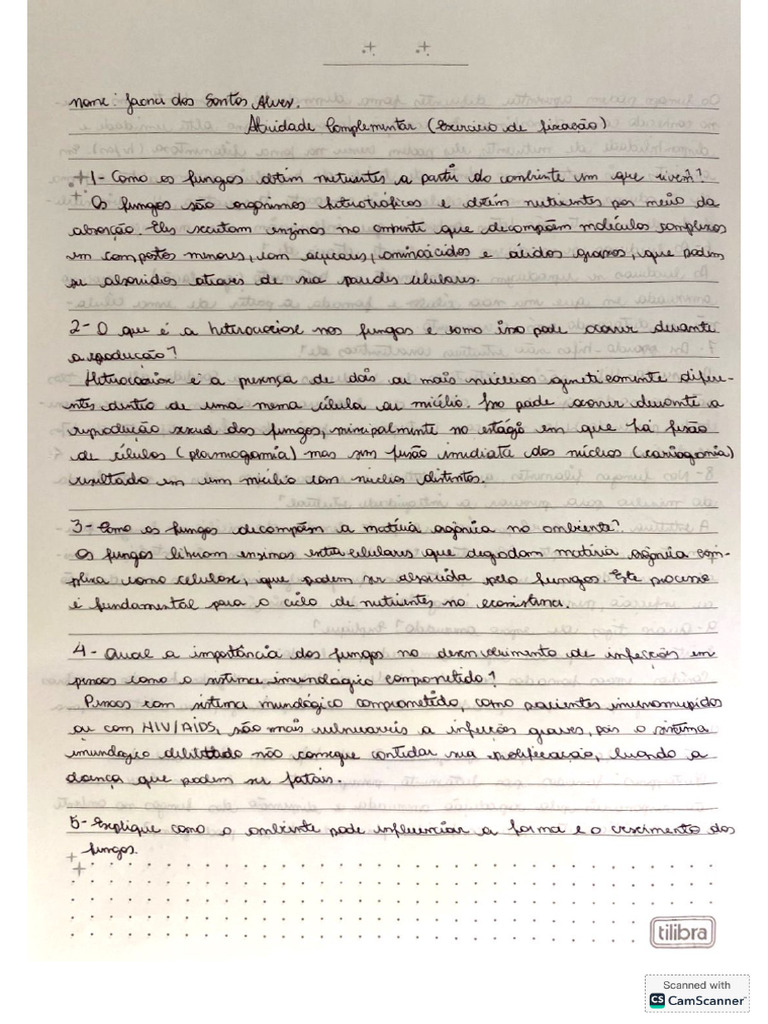 nome: Jacna dos Santos Alves.
Atividade Complementar (Exercício de fixação)
1- Como os fungos obtém nutrientes a partir do ambiente em que vivem?
Os fungos são organismos heterotróficos e obtém nutrientes por meio da
absorção. Eles secretam enzimas no ambiente que decompõem moléculas complexas
em compostos menores, com açucares, aminoácidos e ácidos graxos, que podem
se absorvidos atraves de sua paredes celulares.
2- O que é a heterocariose nos fungos e como isso pode ocorrer durante
a reprodução?
Heterocariose é a presença de dois ou mais núcleos geneticamente difere-
ntes dentro de uma mesma célula ou micélio. Isso pode ocorrer durante a
reprodução sexual dos fungos, principalmente no estágio em que há fusão
de células (plasmogamia) mas sem fusão imediata dos núcleos (cariogamia)
resultado em um micélio com núcleos distintos.
3- Como os fungos decompõem a matéria orgânica no ambiente?
Os fungos liberam enzimas extracelulares que degradam matéria orgânica com-
plexa como celulose, que podem ser absorvida pelo fungos. Este processo
é fundamental para o ciclo de nutrientes no ecossistema.
4- Qual a importância dos fungos no desenvolvimento de infecções em
pessoas como o sistema imunologico comprometido?
Pessoas com sistema imunológico comprometido, como pacientes
ou com HIV/AIDS, são mais vulneraveis a infecções graves, pois o sistema
imunologico debilitado não consegue sua proliferação, levando a
doença que podem ser fatais.
5- Explique como o ambiente pode influenciar a forma e o crescimento dos
fungos.
tilibra
Scanned with
CS CamScanner